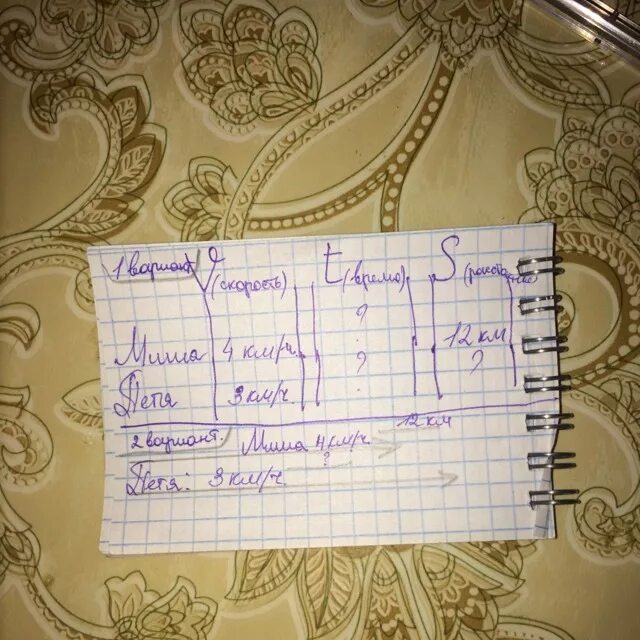 1 вариант V (скорость) t (время) S (расстояние)
?
Миша 4 км/ч 12 км
? ?
Петя 3 км/ч
12 км
2 вариант. Миша 4 км/ч
?
Петя: 3 км/ч